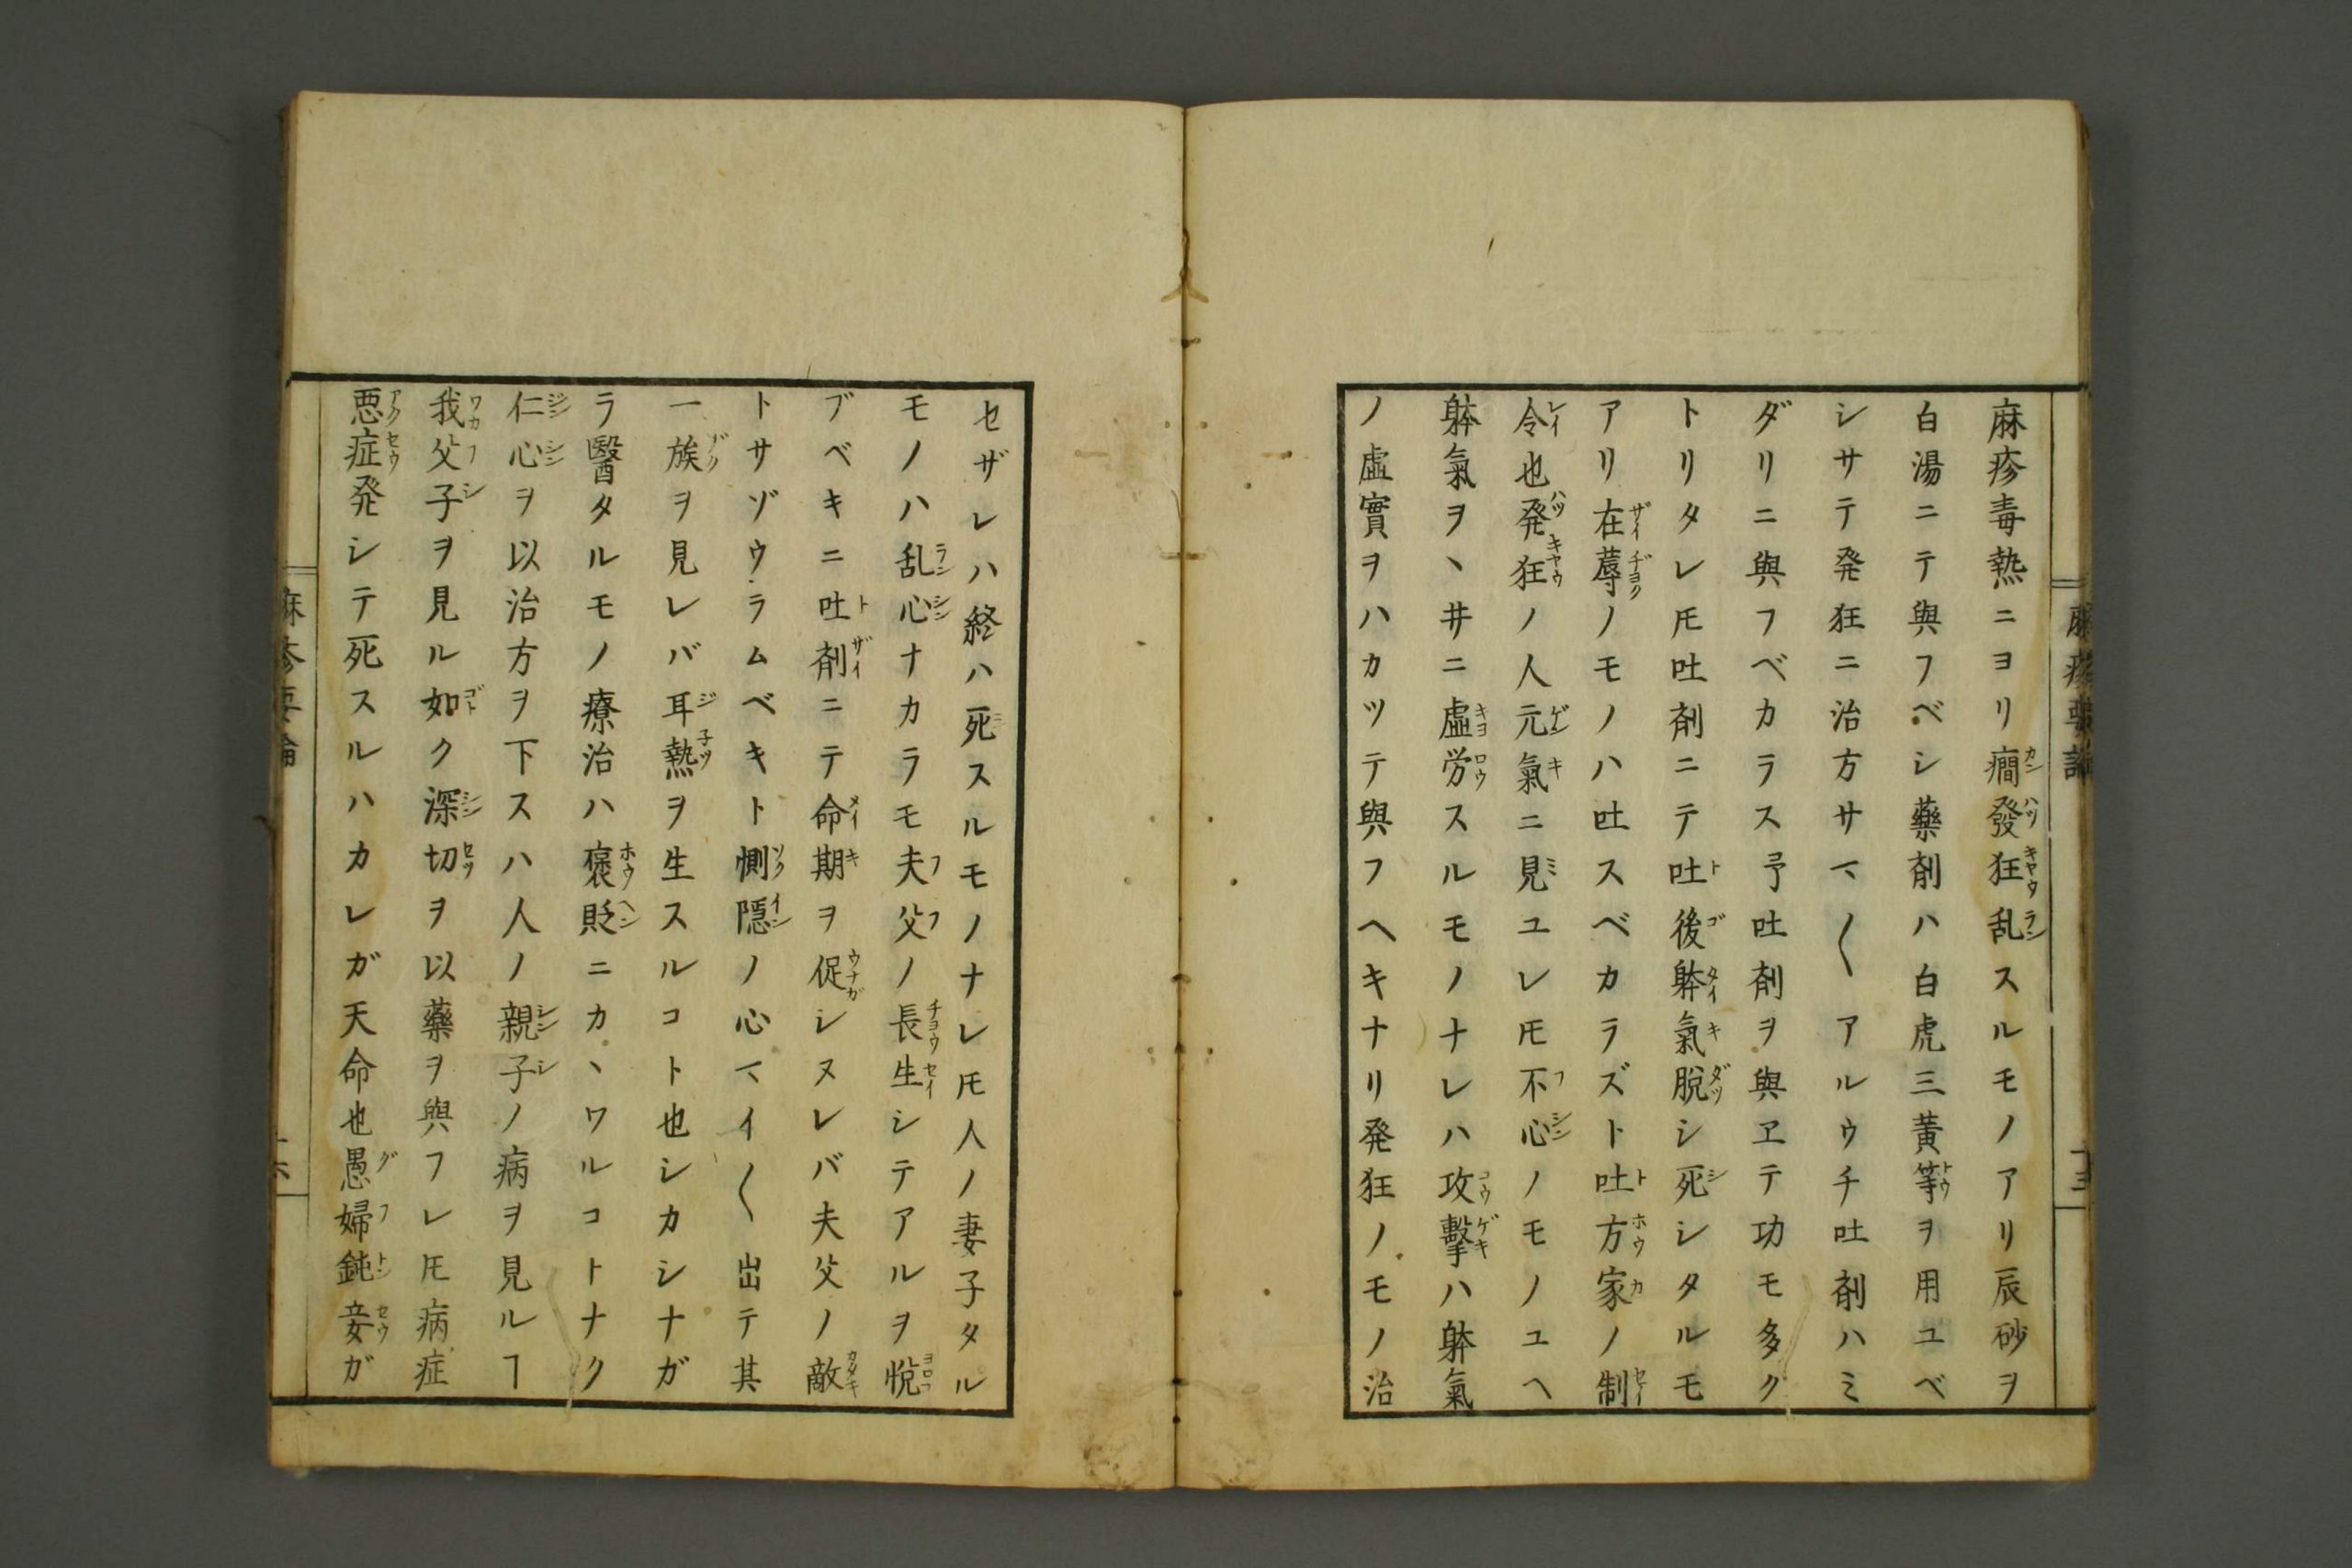 麻疹毒熱ニヨリ癇發狂乱スルモノアリ辰砂ヲ
白湯ニテ與フベシ藥剤ハ白虎三黄等ヲ用ユベ
シサテ発狂ニ治方サマ〱アルウチ吐剤ハミ
ダリニ與フベカラス予吐剤ヲ與ヱテ功モ多ク
トリタレ𪜈吐剤ニテ吐後躰氣脱シ死シタルモ
アリ在蓐ノモノハ吐スベカラズト吐方家ノ制
令也発狂ノ人元氣ニ見ユレ𪜈不心ノモノユヘ
躰氣ヲヽ井ニ虚労スルモノナレハ攻擊ハ躰氣
ノ虚實ヲハカツテ與フヘキナリ発狂ノモノ治
セザレハ終ハ死スルモノナレ𪜈人ノ妻子タル
モノハ乱心ナカラモ夫父ノ長生シテアルヲ悦
ブベキニ吐剤ニテ命期ヲ促シヌレバ夫父ノ敵
トサゾウラムベキト惻隠ノ心マイ〱出テ其
一族ヲ見レバ耳熱ヲ生スルコト也シカシナガ
ラ醫タルモノノ療治ハ褒貶ニカヽワルコトナク
仁心ヲ以治方ヲ下スハ人ノ親子ノ病ヲ見ルヿ
我父子ヲ見ル如ク深切ヲ以藥ヲ與フレ𪜈病症
悪症発シテ死スルハカレガ天命也愚婦鈍妾ガ
麻疹要論